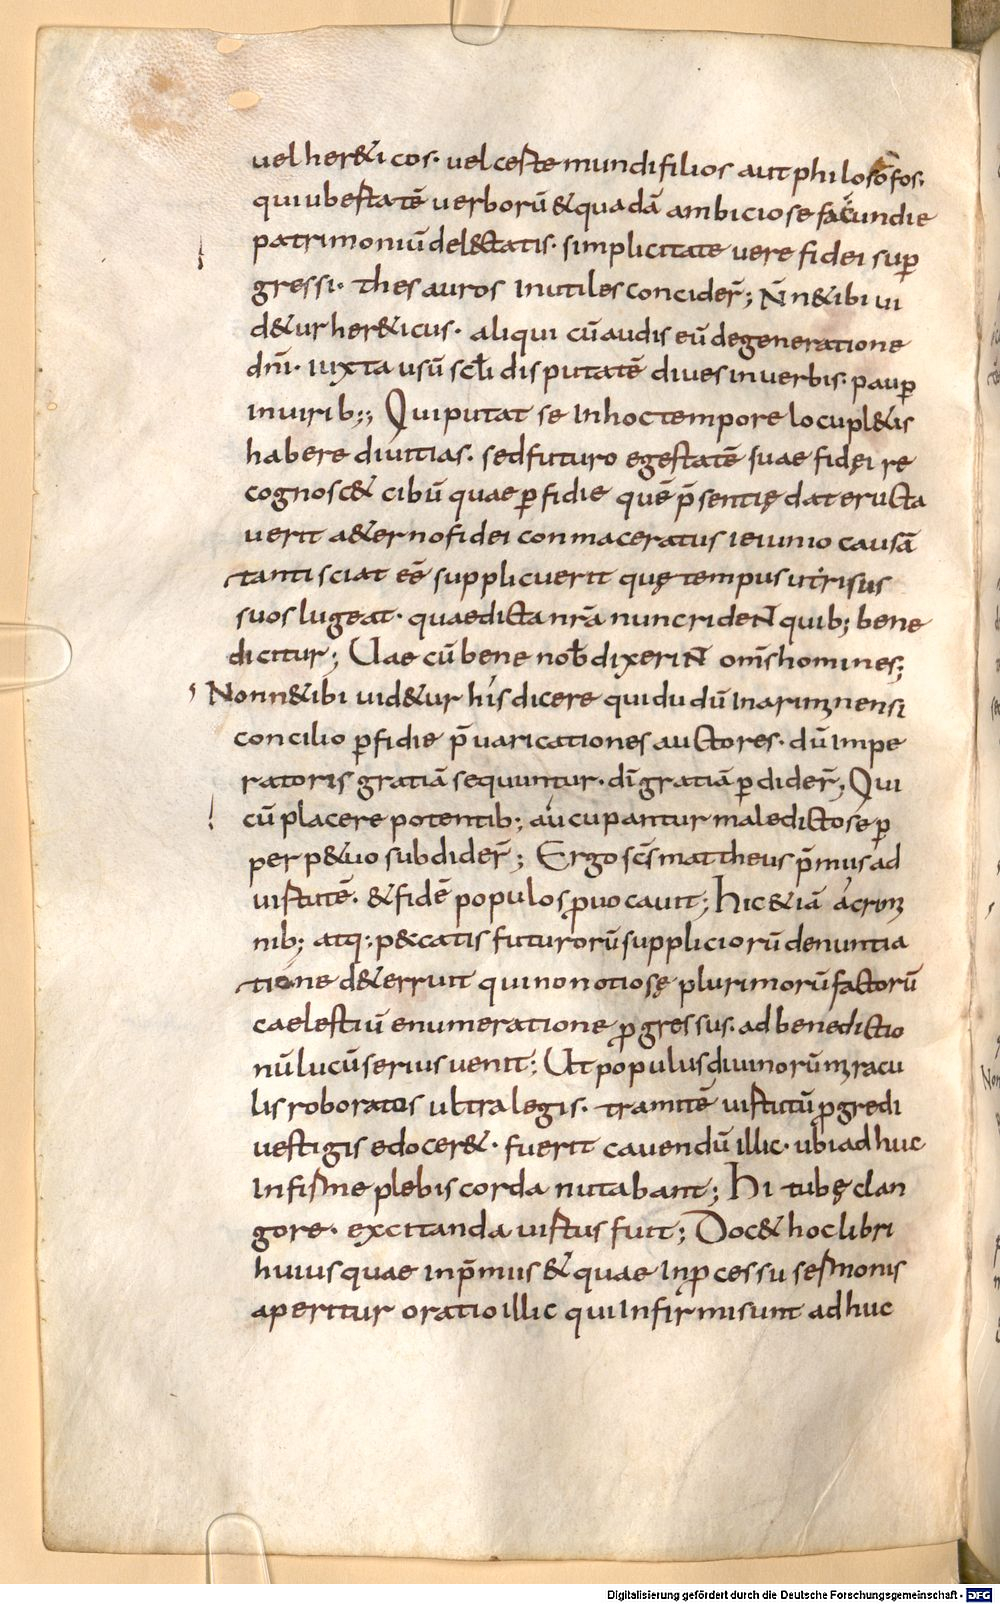 uel her&icos· uel ceste mundi filios aut philosofos·
qui ubestatē uerborū & quadā ambiciose facundie
patrimoniū del&ctatis· simplicitate uere fidei sup̄
gressi· thesauros inutiles concider̄; N̄n& ibi ui
d&ur her&icus· aliqui cū audis eū de generatione
dn̄i· iuxta usū scłi disputatē diues in uerbis· paup̄
in uirib;; Qui putat se in hoc tempore locupl&is
habere diuitias· sed futuro egestatē suae fidęi re
cognosc& cibū quae p̄fidie quē p̄sentię dat eructa
uerit a&erno fidei conmaceratus ieiunio causā
tanti sciat eē supplicuerit quę tempus ut risus
suos lugeat· quae dicta nr̄a nunc rideNt quib; bene
dicitur; Uae cū bene nob̄ dixeriNt om̄s homines;
Nonn& ibi uid&ur his dicere qui dudū in ariminensi
concilio p̄fidie p̄uaricationes auctores· dū impe
ratoris gratiā sequuntur· dī gratiā p̄dider̄; Qui
cū placere potentib; aucupantur maledicto se p̄
perp&uo subdider̄; Ergo scs̄ mattheus p̄mus ad
uirtutē· & fidē populos p̄uocauit; Hic &iā a crimi
nib; atq; p&catis futurorū suppliciorū denuntia
tione d&erruit qui non otiosę plurimorū factorū
caelestiū enumeratione p̄gressus· ad benedictio
nū lucū serius uenit; Ut populus diuinorū miracu
lis roboratos ultra legis· tramitē uirtutū p̄gredi
uestigis edocer&· fuerit cauendū illic· ubi adhuc
infirme plebis corda nutabant; Hi tubę clan
gore· excitanda uirtus fuit; Doc& hoc libri
huius quae in p̄mis & quae in p̄cessu sermonis
aperitur oratio illic qui infirmi sunt adhuc
Digitalisierung gefördert durch die Deutsche Forschungsgemeinschaft - DFG